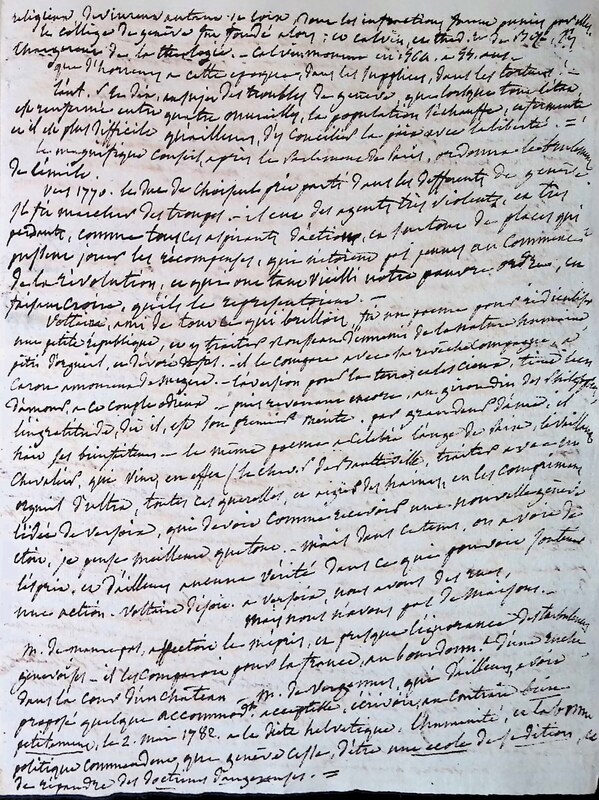 religion devinrent autant de loix, dont les infractions furent punies par elles
le collège de genève fut fondé alors; ce calvin, et thed. de Beze, fut
chargé de la theologie. - Calvin mourut en 1564. a 55. ans.
que d'horreurs a cette epoque, dans les supplices, dans les tortures! -
dit, au sujet des troubles de genève que lorsque tout l'état
est renfermé entre quatre murailles, la population s'échauffe, et fermente
et il est plus difficile qu'ailleurs, d'y concilier la paix avec la liberté. =
le magnifique Conseil, après le Parlement de Paris, ordonna
de l'émile.
Vers 1770. le duc de Choiseul prit parti dans les differents de genève
Il fit marcher des troupes. - il eut des agents très violents, et très
comme tous ces aspirants d'action, et surtout de places qui
pussent jouer les recompenses, que n'étoient pas jeunes au Commencement
de la révolution, et que ont tant vieilli notre pauvre ordre, en
faisant croire, qu'ils le representoient. -
Voltaire, ami de tout ce qui brilloit, fit un poeme pour ridiculiser
une petite republique, et y traita rousseau d'ennemi de la nature humaine
pétri d'orgueil, et dévoré de fiel. - il le compare avec sa revêche compagne, a
Caron amoureux de Megere. - l'aversion pour la terre et les cieux, tient lieu
d'amour, a ce couple odieux - puis revenant encore, au
l'ingratitude, dit il, est son premier mérite. par grandeur d'ame, il
hait ses bienfaiteurs - le même poeme a célébré l'ange de paix, le brillant
Chevalier, que vint, en effet / le chev. de Beautteville, traiter avec un
orgueil d'ultra, toutes ces querelles, et aigrir des haines, en les comprimant
l'idée de versoix, que devoit comme recevoir une nouvelle généra
tion, je pense meilleure que tout. - mais dans ce tems, on avoit de
l'esprit, et d'ailleurs aucune vérité dans ce que pouvoit soutenir
une action. - Voltaire disoit. a versoix nous avons des rues,
mais nous n'avons pas de maisons. -
M. de maurepas, affectoit le mépris, et presque l'ignorance des troubles
genevoises - il les comparoit pour la france, au bourdonnt. d'une ruche
dans la cour d'un château - M. de Vergennes, que d'ailleurs, avoit
proposé quelque accommodt. acceptable, écrivoit, au contraire bien
petitement, le 2. mai 1782. a la diète helvetique. l'humanité, et la bonne
politique commandent, que genève cesse, d'être une ecole de sedition, et
de répandre des doctrines dangereuses. =